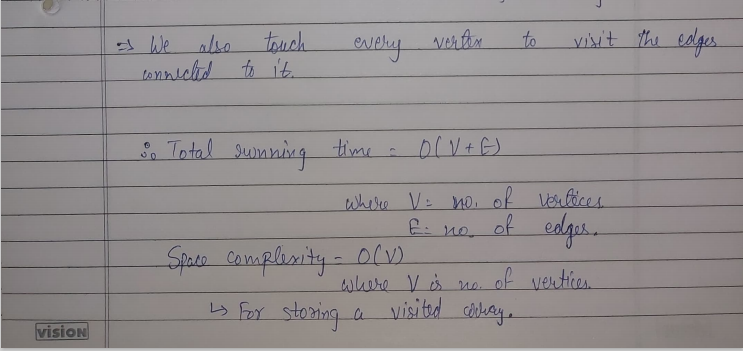 ⇒ We also touch every vertex to visit the edges
connected to it.
∴ Total running time = O(V+E)
where V = no. of vertices
E = no. of edges.
Space complexity = O(V)
where V is no. of vertices.
↳ For storing a visited array.
vision